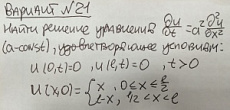 Вариант №21
Найти решение уравнения ∂u/∂t = a² ∂²u/∂x²
(a-const), удовлетворяющее условиям:
u(0,t)=0, u(ℓ,t)=0, t>0
u(x,0)= { x, 0≤x≤ℓ/2
ℓ-x, ℓ/2<x<ℓ